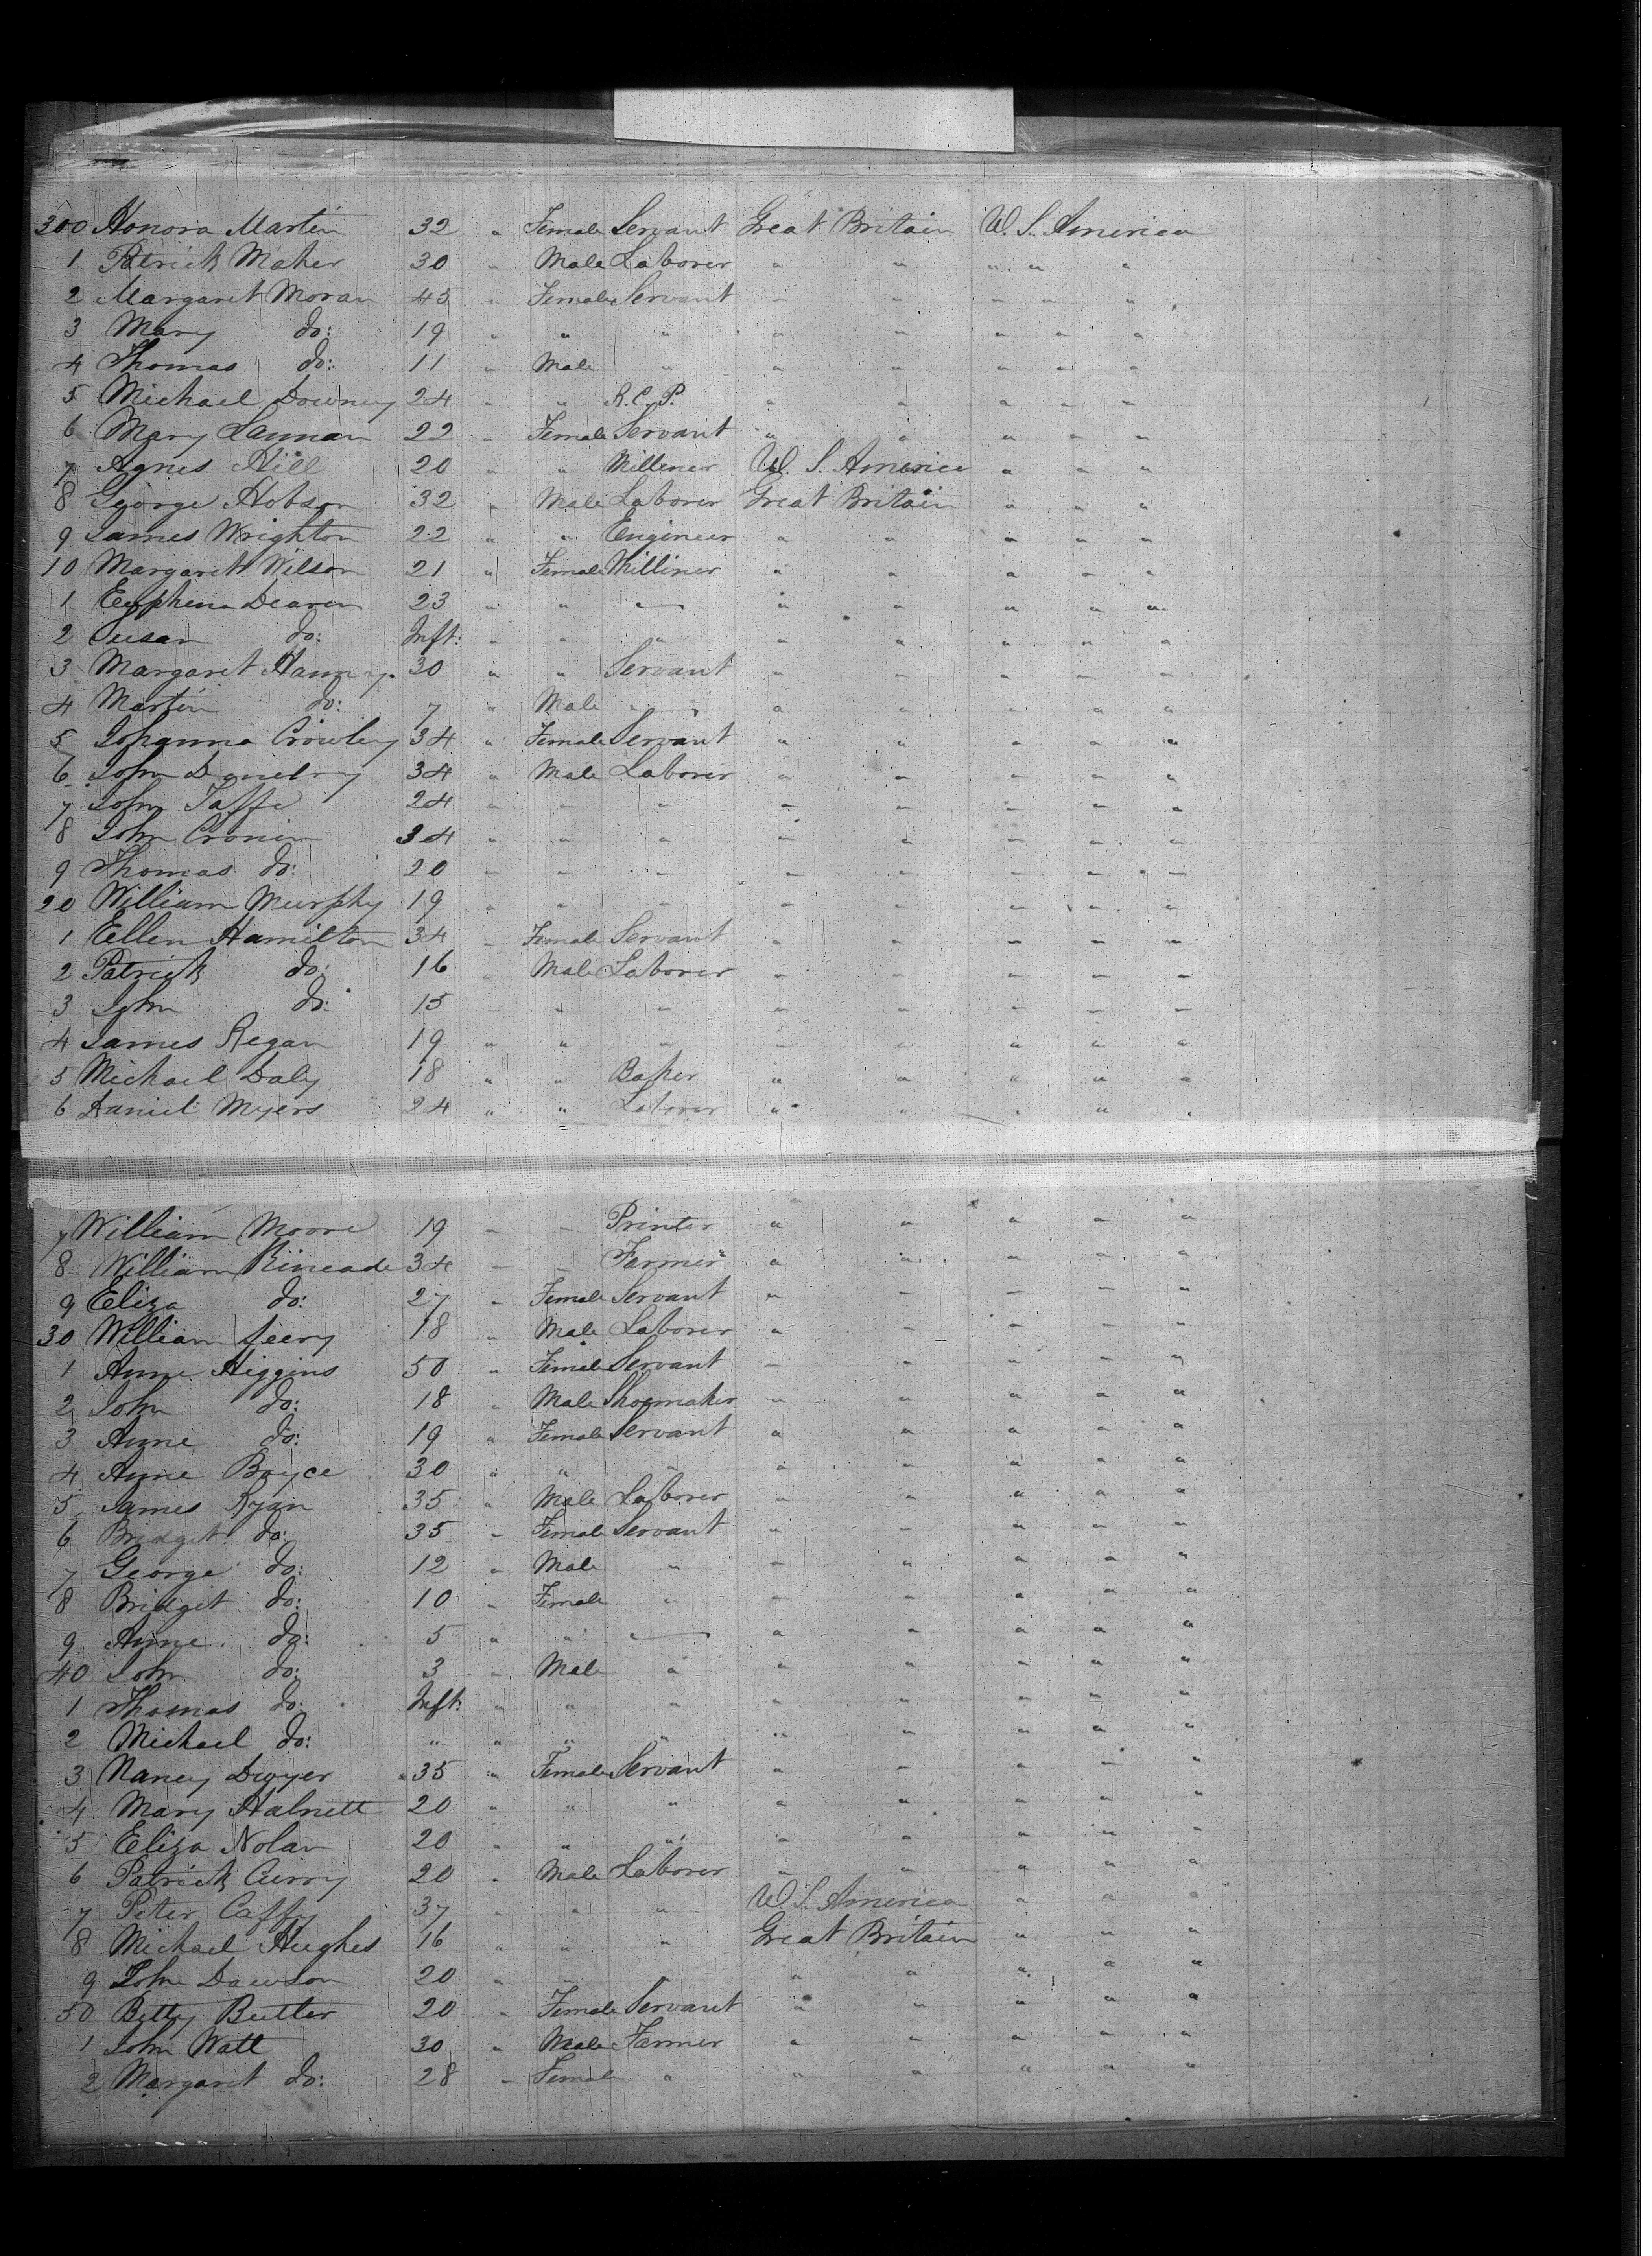 300 Honora Martin 32 " Female Servant Great Britain U. S. America
1 Patrick Maher 30 " Male Laborer " " " " "
2 Margaret Moran 45 " Female Servant " " " " "
3 Mary do: 19 " " " " " " " "
4 Thomas do: 11 " Male " " " " " "
5 Michael Downey 24 " " R.C.P. " " " " "
6 Mary Lannan 22 " Female Servant " " " " "
7 Agnes Hill 20 " " Milliner U. S. America " " "
8 George Hobson 32 " Male Laborer Great Britain " " "
9 James Wrighton 22 " " Engineer " " " " "
10 Margaret Wilson 21 " Female Milliner " " " " "
1 Euphena Dearen 23 " " " " " " " "
2 Susan do: Inft: " " " " " " " "
3 Margaret Hanney 30 " " Servant " " " " "
4 Martin do: 7 " Male " " " " " "
5 Johanna Crowley 34 " Female Servant " " " " "
6 John 34 " Male Laborer " " " " "
7 John Taffe 24 " " " " " " " "
8 John Cronin 34 " " " " " " " "
9 Thomas do: 20 " " " " " " " "
20 William Murphy 19 " " " " " " " "
1 Ellen Hamilton 34 " Female Servant " " " " "
2 Patrick do: 16 " Male Laborer " " " " "
3 John do: 15 " " " " " " " "
4 James Regan 19 " " " " " " " "
5 Michael Daly 18 " " Baker " " " " "
6 Daniel Myers 24 " " Laborer " " " " "
7 William Moore 19 " " Printer " " " " "
8 William Kincade 34 " " Farmer " " " " "
9 Eliza do: 27 " Female Servant " " " " "
30 William 18 " Male Laborer " " " " "
1 Anne Higgins 50 " Female Servant " " " " "
2 John do: 18 " Male Shoemaker " " " " "
3 Anne do: 19 " Female Servant " " " " "
4 Anne Boyce 30 " " " " " " " "
5 James Ryan 35 " Male Laborer " " " " "
6 Bridget do: 35 " Female Servant " " " " "
7 George do: 12 " Male " " " " " "
8 Bridget do: 10 " Female " " " " " "
9 Anne do: 5 " " " " " " " "
40 John do: 3 " Male " " " " " "
1 Thomas do: Inft: " " " " " " " "
2 Michael do: " " " " " " " " "
3 Nancy Dwyer 35 " Female Servant " " " " "
4 Mary Halnett 20 " " " " " " " "
5 Eliza Nolan 20 " " " " " " " "
6 Patrick Curry 20 " Male Laborer " " " " "
7 Peter Caffy 37 " " " U. S. America " " "
8 Michael Hughes 16 " " " Great Britain " " "
9 John Dawson 20 " " " " " " " "
50 Betty Butler 20 " Female Servant " " " " "
1 John Watt 30 " Male Farmer " " " " "
2 Margaret do: 28 " Female " " " " " "